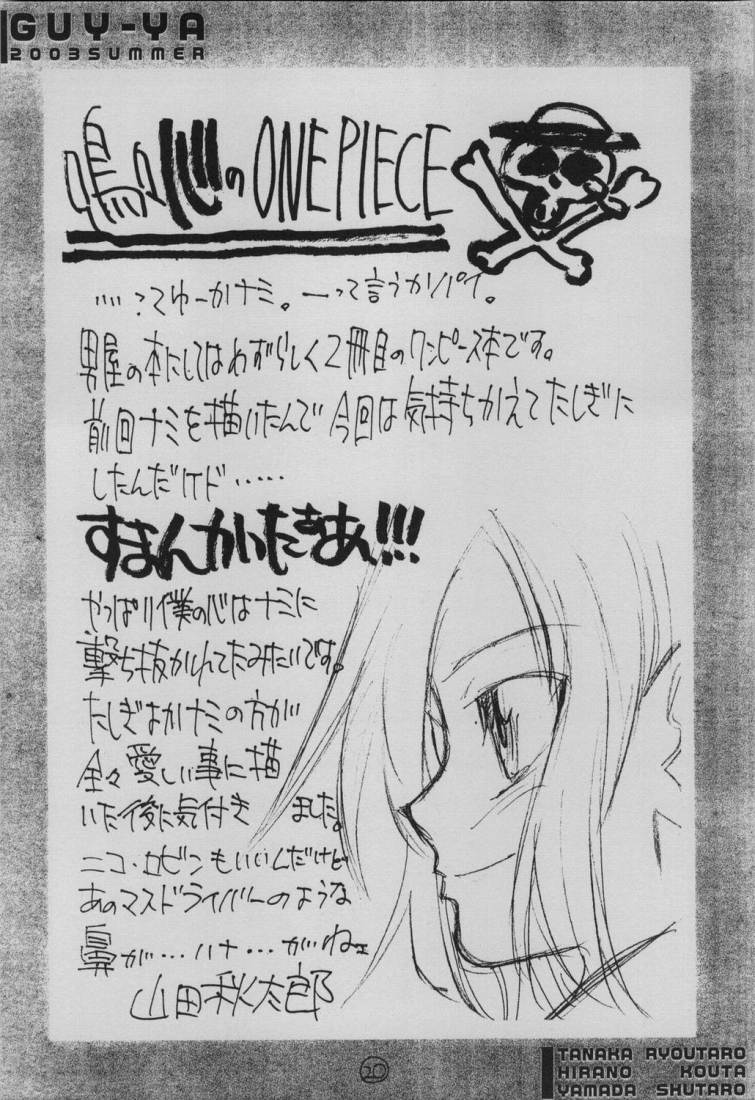 GUY-YA
2003SUMMER
心のONE PIECE
って言うか
男屋の本にしてはめずらしく2冊目のワンピース本です。
前回ナミを描いたんで今回は気持ちかえてたしぎに
したんだけド……
すまんかいたさあん!!!
やっぱり僕の心はナミに
撃ち抜かれてたみたいです。
たしぎよかナミの方が
全々愛しい事に描
いた後に気付き ました。
ニコ・ロビンもいいんだけど
あのマスドライバーのような
鼻が…ハナ…がねェ
山田秋太郎
20
TANAKA RYOUTARO
HIRANO KOUTA
YAMADA SHUTARO